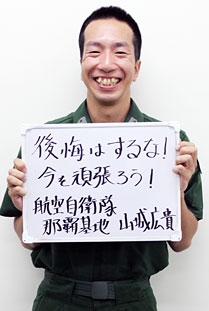 後悔はするな！
今を頑張ろう！
航空自衛隊
那覇基地 山城広貴